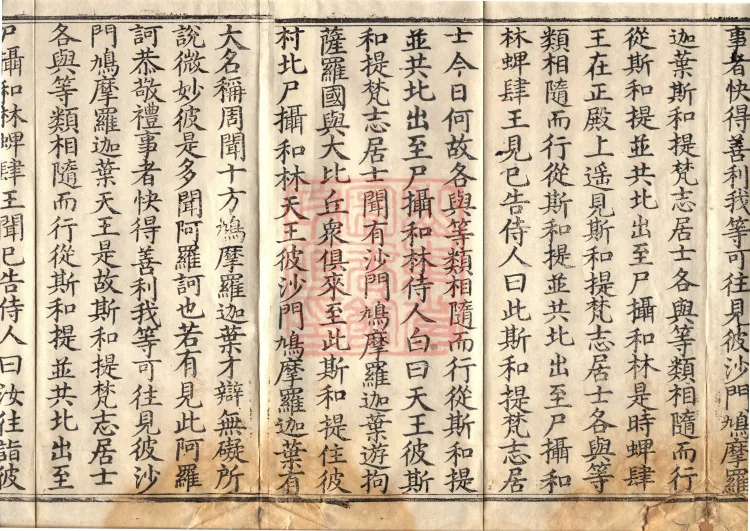 事者快得善利我等可往見彼沙門鳩摩羅
迦葉斯和提梵志居士各與等類相隨而行
從斯和提並共北出至尸攝和林是時蜱肆
王在正殿上遥見斯和提梵志居士各與等
類相隨而行從斯和提並共北出至尸攝和
林蜱肆王見已告侍人曰此斯和提梵志居
士今日何故各與等類相隨而行從斯和提
並共北出至尸攝和林侍人白曰天王彼斯
和提梵志居士聞有沙門鳩摩羅迦葉遊拘
薩羅國與大比丘衆俱來至此斯和提住彼
村北尸攝和林天王彼沙門鳩摩羅迦葉有
大名稱周聞十方鳩摩羅迦葉才辯無礙所
說微妙彼是多聞阿羅訶也若有見此阿羅
訶恭敬禮事者快得善利我等可往見彼沙
門鳩摩羅迦葉天王是故斯和提梵志居士
各與等類相隨而行從斯和提並共北出至
尸攝和林蜱肆王聞已告侍人曰汝往詣彼